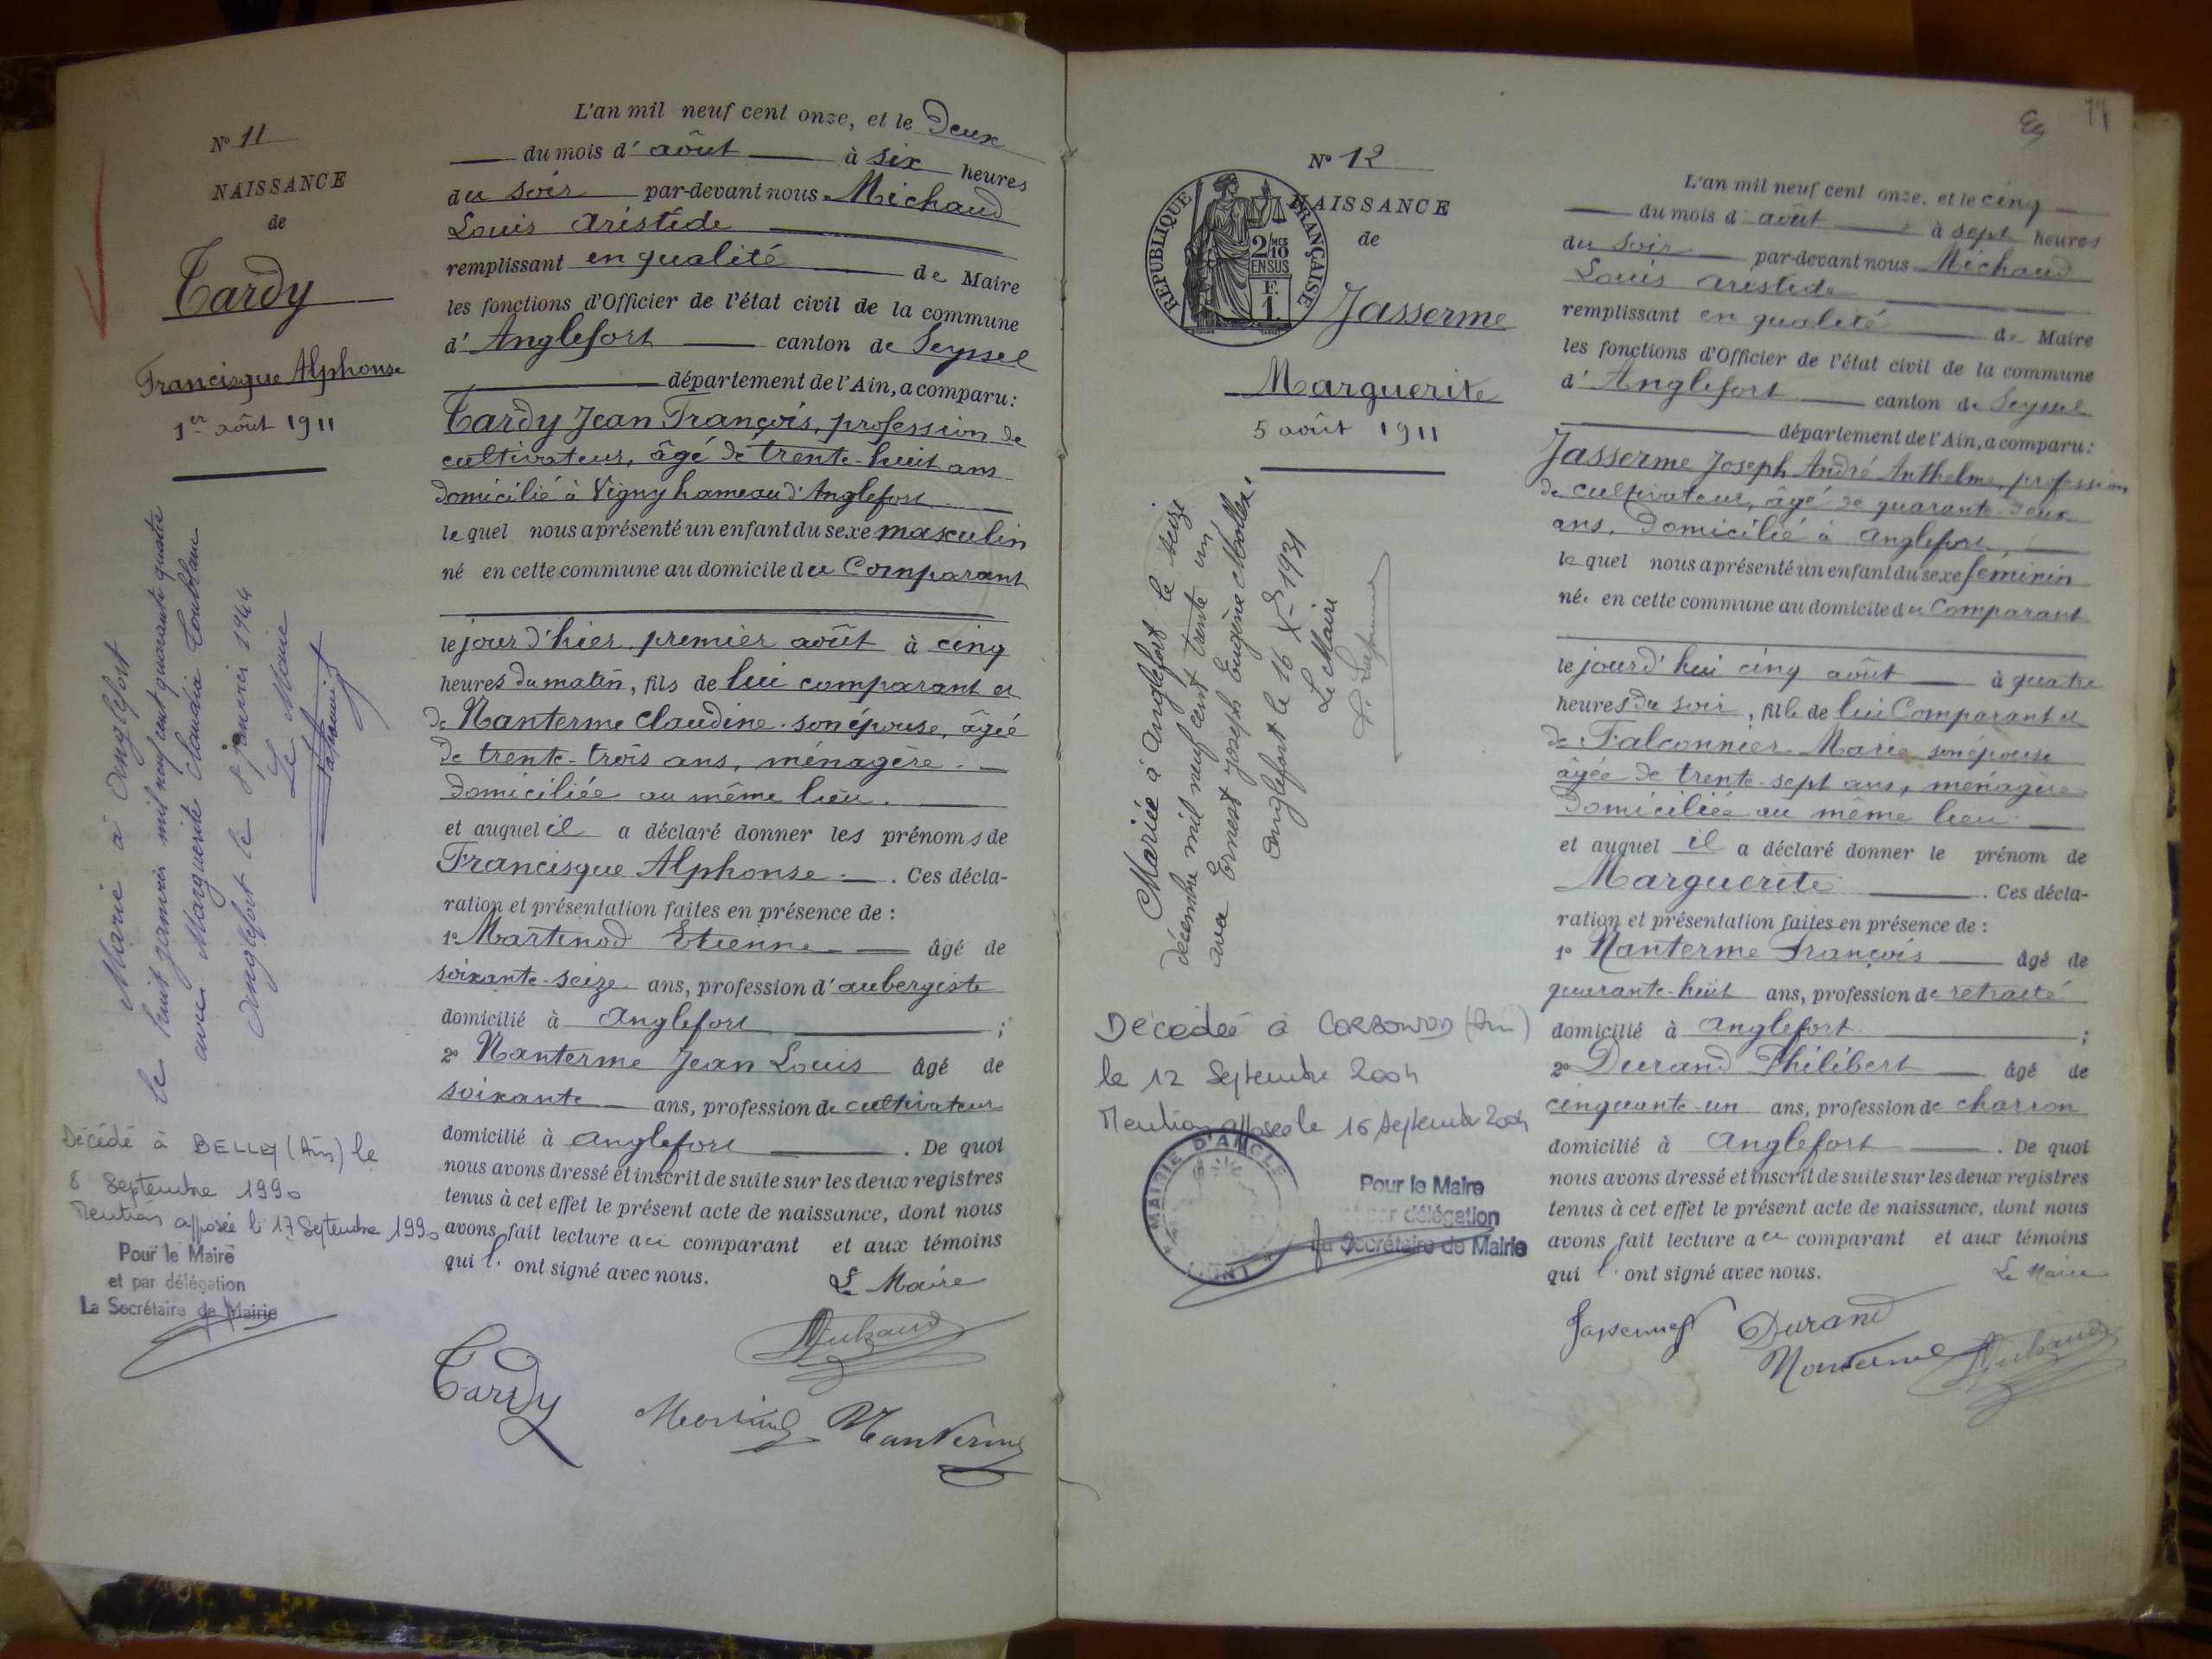 N° 11
NAISSANCE
de
Tardy
Francisque Alphonse
1er août 1911
Marié à Anglefort
le huit janvier mil neuf cent quarante quatre
avec Marguerite Claudia
Anglefort le 8 janvier 1944
Le Maire
Décédé à BELLEY (Ain) le
8 Septembre 1990
Mention apposée le 17 Septembre 1990
Pour le Maire
et par délégation
La Secrétaire de Mairie
L'an mil neuf cent onze, et le Deux
du mois d'août à six heures
du soir par-devant nous Michaud
Louis Aristide
remplissant en qualité de Maire
les fonctions d'Officier de l'état civil de la commune
d'Anglefort canton de Seyssel
département de l'Ain, a comparu:
Tardy Jean François, profession de
cultivateur, âgé de trente-huit ans
domicilié à Vigny hameau d'Anglefort
lequel nous a présenté un enfant du sexe masculin
né en cette commune au domicile du Comparant
le jour d'hier premier août à cinq
heures du matin, fils de lui comparant et
de Nanterme Claudine son épouse, âgée
de trente-trois ans, ménagère.
domiciliée au même lieu.
et auquel il a déclaré donner les prénoms de
Francisque Alphonse. Ces décla-
ration et présentation faites en présence de :
1° Martinod Etienne âgé de
soixante-seize ans, profession d'aubergiste
domicilié à Anglefort ;
2° Nanterme Jean Louis âgé de
soixante ans, profession de cultivateur
domicilié à Anglefort. De quoi
nous avons dressé et inscrit de suite sur les deux registres
tenus à cet effet le présent acte de naissance, dont nous
avons fait lecture au comparant et aux témoins
qui l'ont signé avec nous.
Le Maire
Michaud
Tardy
Martinod Nanterme
11
N° 12
RÉPUBLIQUE FRANÇAISE
2/10 MES
EN SUS
F.
1.
NAISSANCE
de
Jasserme
Marguerite
5 août 1911
Mariée à Anglefort le seize
décembre mil neuf cent trente un
avec Ernest Joseph Eugène Mollex.
Anglefort le 16 Xbre 1931
Le Maire
Décédée à CORBONOD (Ain)
le 12 Septembre 2004
Mention apposée le 16 Septembre 2004
MAIRIE D'ANGLE
Pour le Maire
par délégation
La Secrétaire de Mairie
L'an mil neuf cent onze, et le cinq
du mois d'août à sept heures
du soir par-devant nous Michaud
Louis Aristide
remplissant en qualité de Maire
les fonctions d'Officier de l'état civil de la commune
d'Anglefort canton de Seyssel
département de l'Ain, a comparu:
Jasserme Joseph André Anthelme, profession
de cultivateur, âgé de quarante deux
ans, domicilié à Anglefort,
lequel nous a présenté un enfant du sexe féminin
née en cette commune au domicile du Comparant
le jour d'hui cinq août à quatre
heures du soir, fille de lui Comparant et
de Falconnier Marie son épouse
âgée de trente-sept ans, ménagère
domiciliée au même lieu
et auquel il a déclaré donner le prénom de
Marguerite. Ces décla-
ration et présentation faites en présence de :
1° Nanterme François âgé de
quarante-huit ans, profession de retraité
domicilié à Anglefort ;
2° Durand Philibert âgé de
cinquante-un ans, profession de charron
domicilié à Anglefort. De quoi
nous avons dressé et inscrit de suite sur les deux registres
tenus à cet effet le présent acte de naissance, dont nous
avons fait lecture au comparant et aux témoins
qui l'ont signé avec nous.
Le Maire
Jasserme Durand
Nanterme Michaud